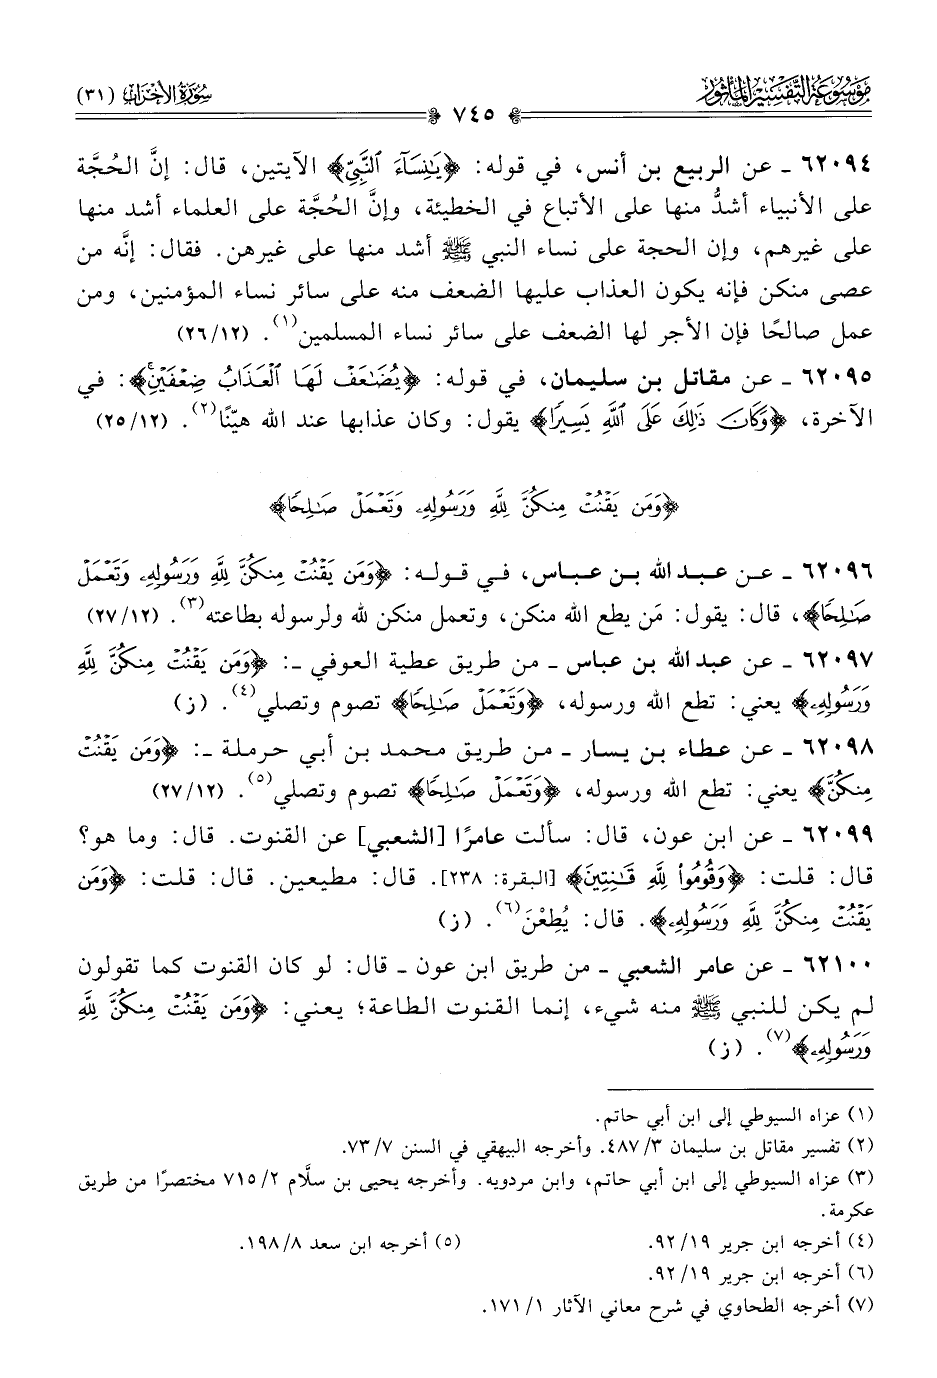 مَوْسُوعَةُ التَّفْسِيرِ المَأْثُورِ
سُورَةُ الأَحْزَابِ (٣١)
٧٤٥
٦٢٠٩٤ ـ عن الربيع بن أنس، في قوله: ﴿يَٰنِسَآءَ ٱلنَّبِيِّ﴾ الآيتين، قال: إنَّ الحُجَّة
على الأنبياء أشدُّ منها على الأتباع في الخطيئة، وإنَّ الحُجَّة على العلماء أشد منها
على غيرهم، وإن الحجة على نساء النبي ﷺ أشد منها على غيرهن. فقال: إنَّه من
عصى منكن فإنه يكون العذاب عليها الضعف منه على سائر نساء المؤمنين، ومن
عمل صالحًا فإن الأجر لها الضعف على سائر نساء المسلمين(١). (١٢/٢٦)
٦٢٠٩٥ ـ عن مقاتل بن سليمان، في قوله: ﴿يُضَٰعَفْ لَهَا ٱلْعَذَابُ ضِعْفَيْنِۚ﴾: في
الآخرة، ﴿وَكَانَ ذَٰلِكَ عَلَى ٱللَّهِ يَسِيرًا﴾ يقول: وكان عذابها عند الله هيّنًا(٢). (١٢/٢٥)
﴿وَمَن يَقْنُتْ مِنكُنَّ لِلَّهِ وَرَسُولِهِۦ وَتَعْمَلْ صَٰلِحًا﴾
٦٢٠٩٦ ـ عن عبد الله بن عباس، في قوله: ﴿وَمَن يَقْنُتْ مِنكُنَّ لِلَّهِ وَرَسُولِهِۦ وَتَعْمَلْ
صَٰلِحًا﴾، قال: يقول: مَن يطع الله منكن، وتعمل منكن لله ولرسوله بطاعته(٣). (١٢/٢٧)
٦٢٠٩٧ ـ عن عبد الله بن عباس ـ من طريق عطية العوفي ـ: ﴿وَمَن يَقْنُتْ مِنكُنَّ لِلَّهِ
وَرَسُولِهِۦ﴾ يعني: تطع الله ورسوله، ﴿وَتَعْمَلْ صَٰلِحًا﴾ تصوم وتصلي(٤). (ز)
٦٢٠٩٨ ـ عن عطاء بن يسار ـ من طريق محمد بن أبي حرملة ـ: ﴿وَمَن يَقْنُتْ
مِنكُنَّ﴾ يعني: تطع الله ورسوله، ﴿وَتَعْمَلْ صَٰلِحًا﴾ تصوم وتصلي(٥). (١٢/٢٧)
٦٢٠٩٩ ـ عن ابن عون، قال: سألت عامرًا [الشعبي] عن القنوت. قال: وما هو؟
قال: قلت: ﴿وَقُومُواْ لِلَّهِ قَٰنِتِينَ﴾ [البقرة: ٢٣٨]. قال: مطيعين. قال: قلت: ﴿وَمَن
يَقْنُتْ مِنكُنَّ لِلَّهِ وَرَسُولِهِۦ﴾. قال: يُطِعْنَ(٦). (ز)
٦٢١٠٠ ـ عن عامر الشعبي ـ من طريق ابن عون ـ قال: لو كان القنوت كما تقولون
لم يكن للنبي ﷺ منه شيء، إنما القنوت الطاعة؛ يعني: ﴿وَمَن يَقْنُتْ مِنكُنَّ لِلَّهِ
وَرَسُولِهِۦ﴾(٧). (ز)
(١) عزاه السيوطي إلى ابن أبي حاتم.
(٢) تفسير مقاتل بن سليمان ٣/٤٨٧. وأخرجه البيهقي في السنن ٧/٧٣.
(٣) عزاه السيوطي إلى ابن أبي حاتم، وابن مردويه. وأخرجه يحيى بن سلَّام ٢/٧١٥ مختصرًا من طريق
عكرمة.
(٤) أخرجه ابن جرير ١٩/٩٢. (٥) أخرجه ابن سعد ٨/١٩٨.
(٦) أخرجه ابن جرير ١٩/٩٢.
(٧) أخرجه الطحاوي في شرح معاني الآثار ١/١٧١.